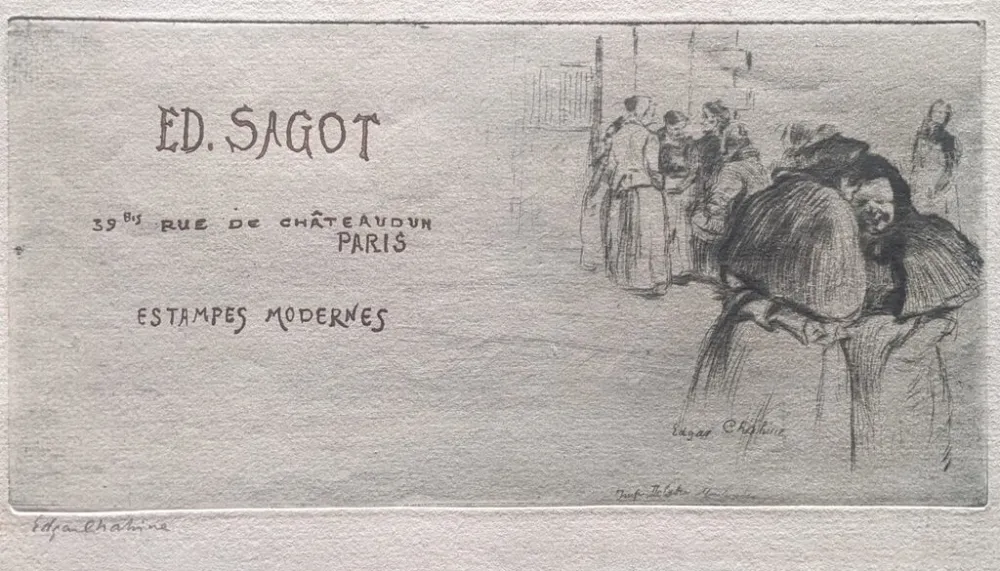 ED. SAGOT
39 BIS RUE DE CHÂTEAUDUN
PARIS
ESTAMPES MODERNES
Edgar Chahine
Edgar Chahine